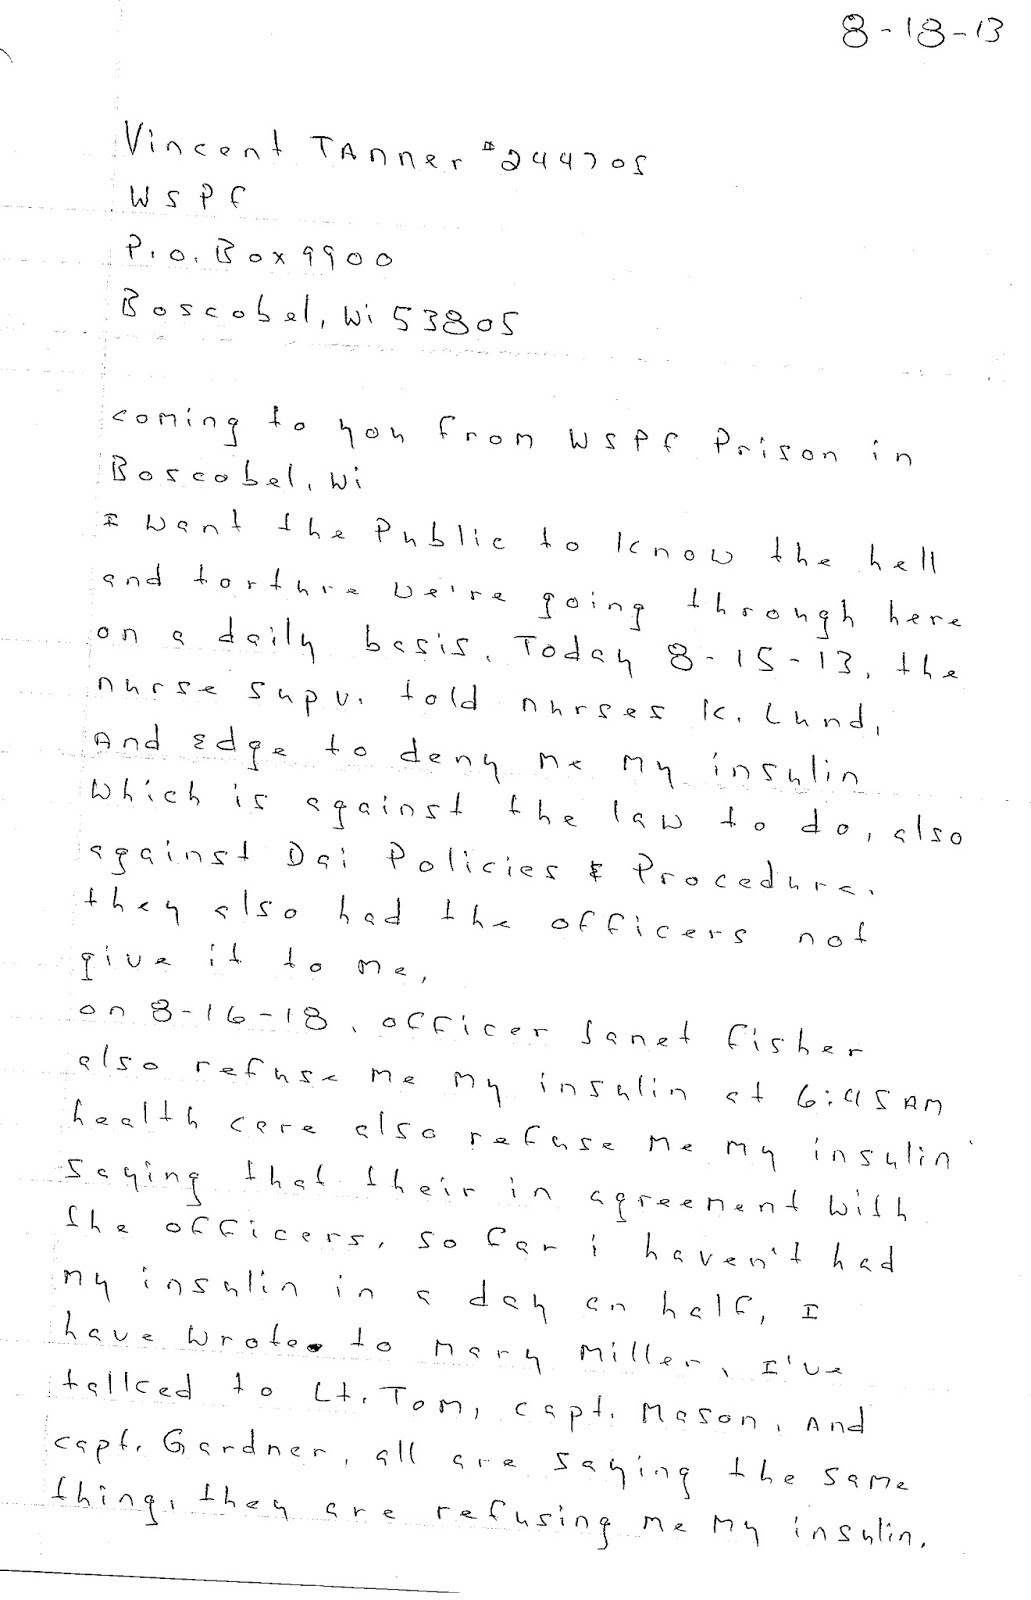 8-18-13
Vincent TAnner #244705
WSPF
P.O. Box 9900
Boscobel, Wi 53805
coming to you from WSPF Prison in
Boscobel, Wi
I want the Public to know the hell
and torture we're going through here
on a daily basis. Today 8-15-13, the
nurse supv. told nurses K. Lund,
And Edge to deny me my insulin
which is against the law to do, also
against Dai Policies & Procedure.
they also had the officers not
give it to me,
on 8-16-18, officer Janet Fisher
also refuse me my insulin at 6:45 AM
health care also refuse me my insulin
saying that their in agreement with
the officers, so far i haven't had
my insulin in a day an half, I
have wrote to Mary Miller, I've
talked to Lt. Tom, capt. Mason, And
capt. Gardner, all are saying the same
thing, they are refusing me my insulin.